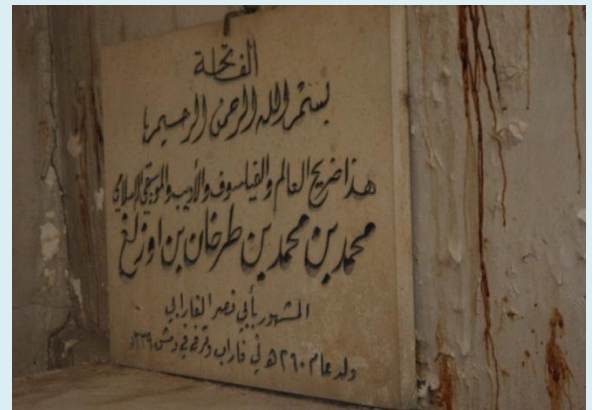 الفاتحة
بسم الله الرحمن الرحيم
هذا ضريح العالم والفيلسوف والأديب والموسيقي الإسلامي
محمد بن محمد بن طرخان بن اوزلغ
المشهور بأبي نصر الفارابي
ولد عام ٢٦٠هـ في فاراب وتوفي في دمشق ٣٣٩هـ